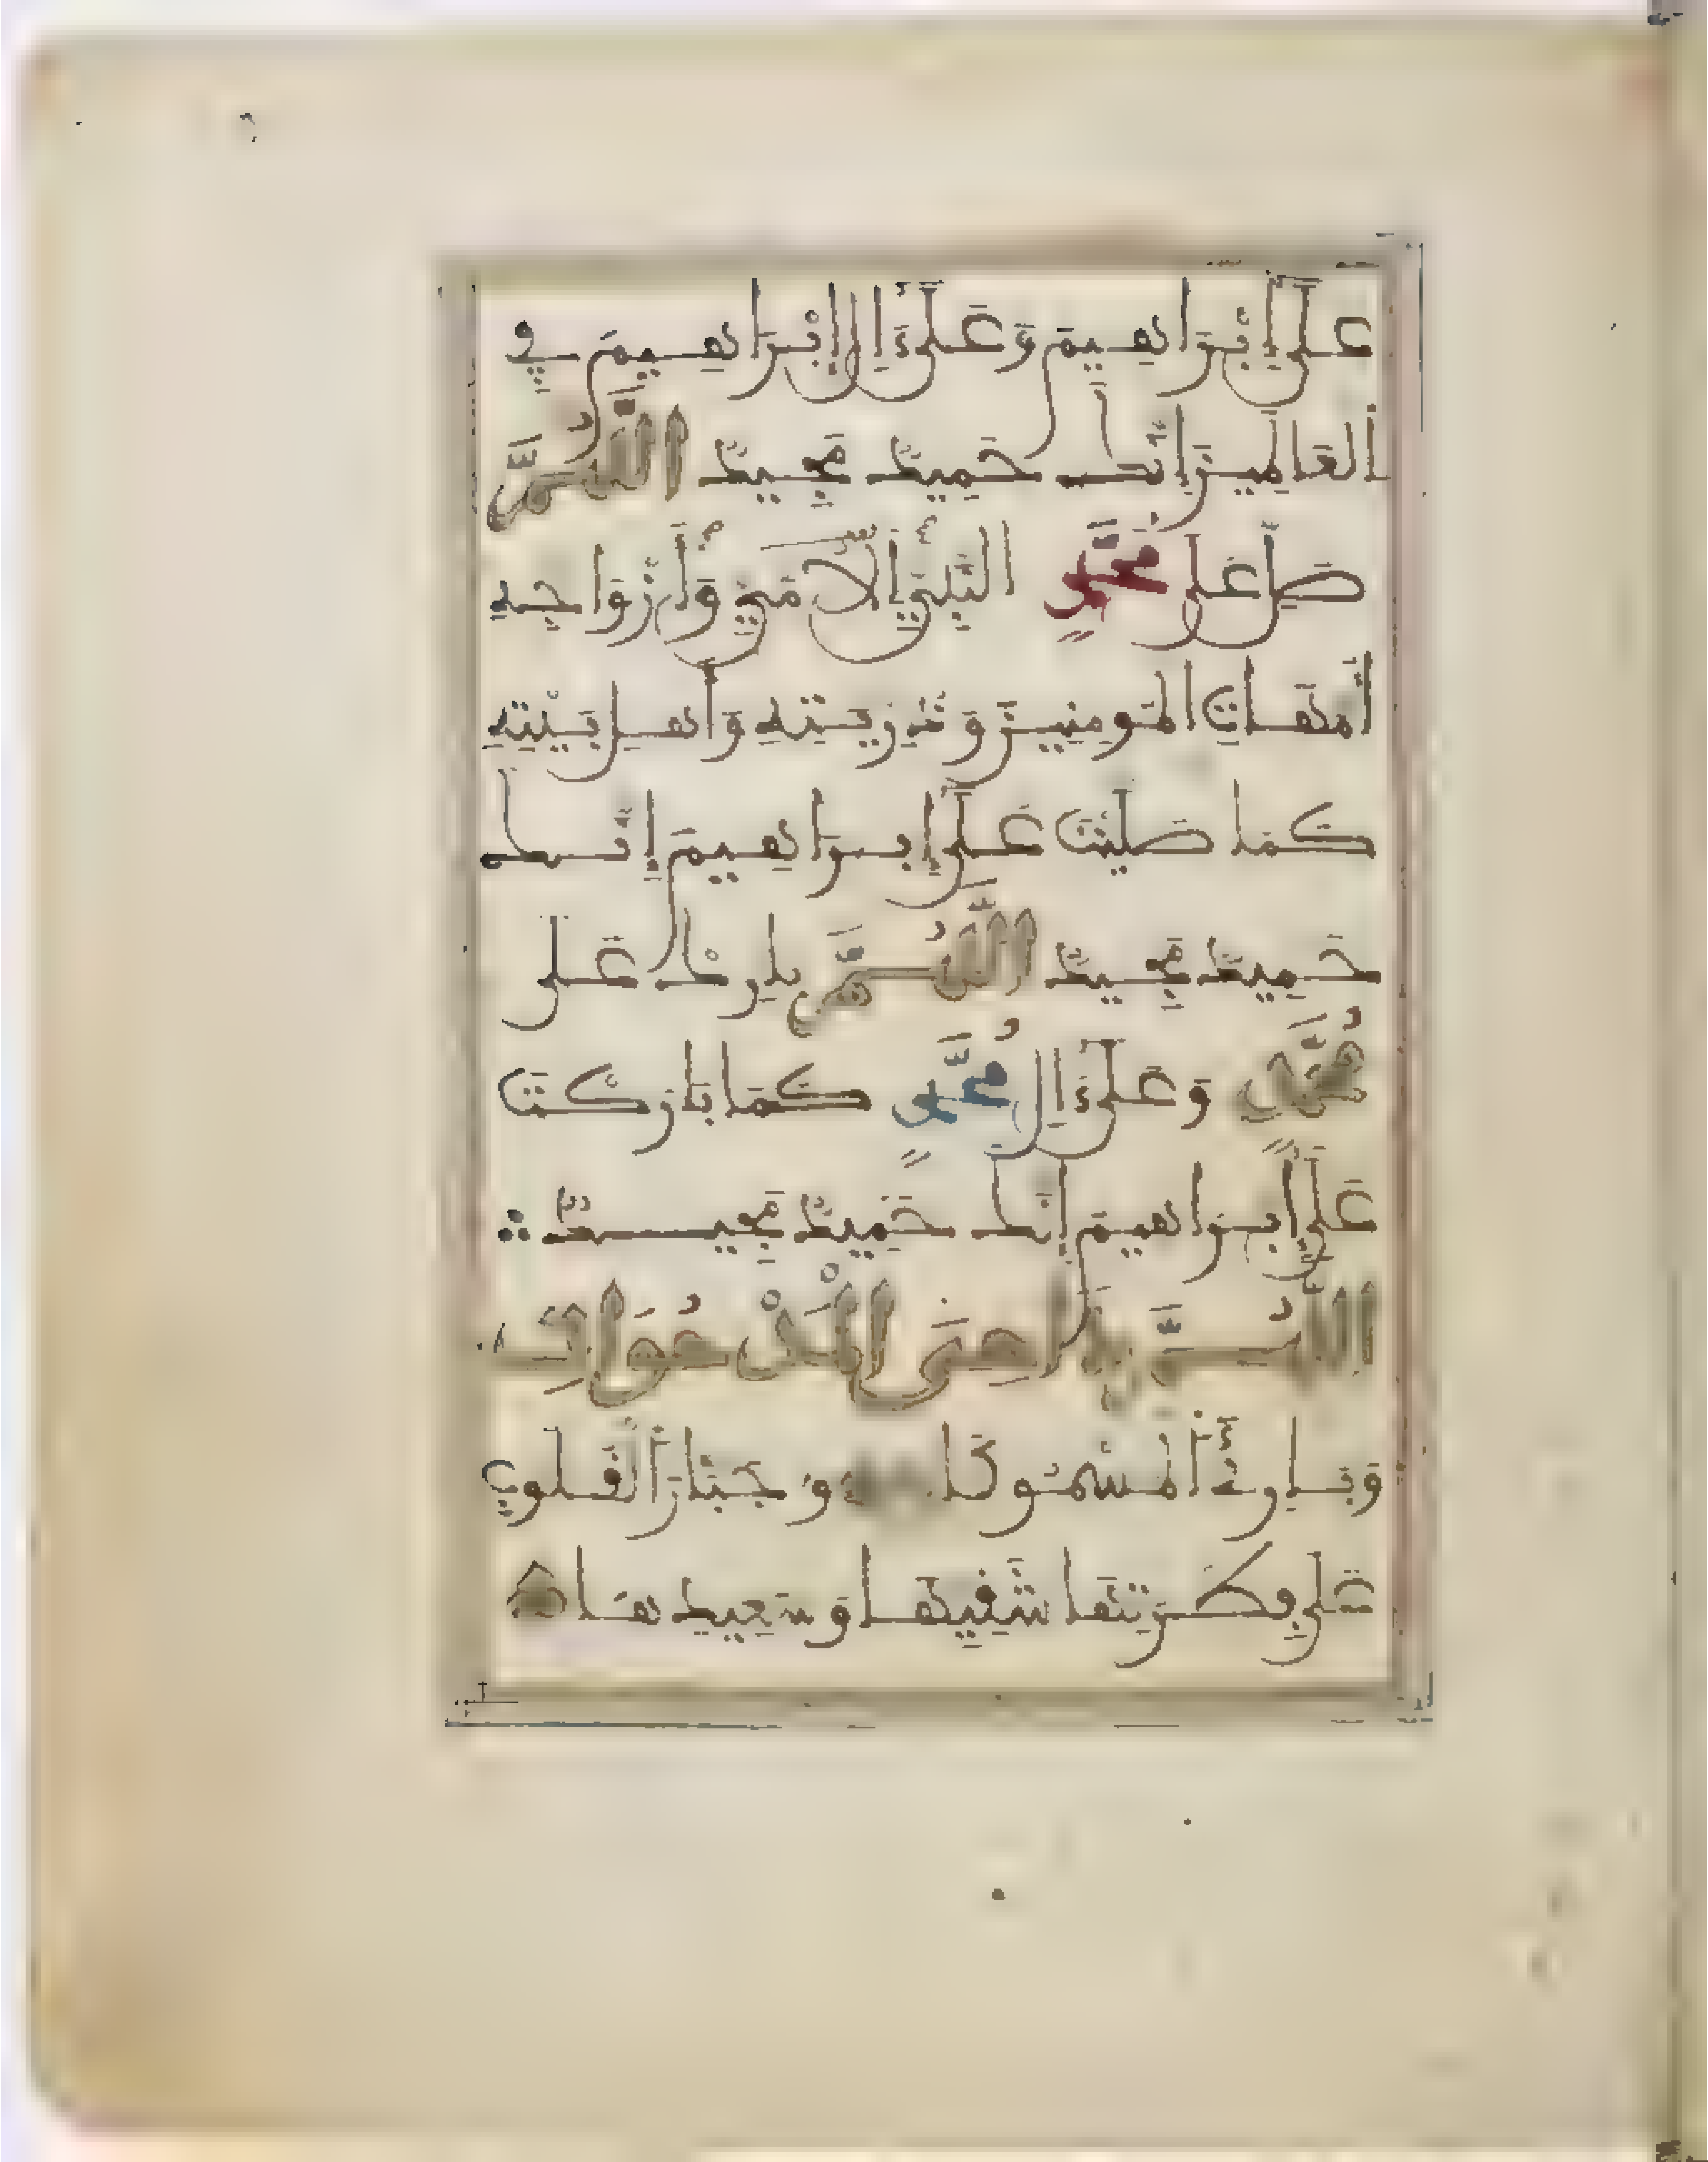 عَلَى إِبْرَاهِيمَ وَعَلَى ءَالِ إِبْرَاهِيمَ فِي
الْعَالَمِينَ إِنَّكَ حَمِيدٌ مَجِيدٌ اللَّهُمَّ
صَلِّ عَلَى مُحَمَّدٍ النَّبِيِّ الْأُمِّيِّ وَأَزْوَاجِهِ
أُمَّهَاتِ الْمُومِنِينَ وَذُرِّيَّتِهِ وَأَهْلِ بَيْتِهِ
كَمَا صَلَّيْتَ عَلَى إِبْرَاهِيمَ إِنَّكَ
حَمِيدٌ مَجِيدٌ اللَّهُمَّ بَارِكْ عَلَى
مُحَمَّدٍ وَعَلَى ءَالِ مُحَمَّدٍ كَمَا بَارَكْتَ
عَلَى إِبْرَاهِيمَ إِنَّكَ حَمِيدٌ مَجِيدٌ
اللَّهُمَّ دَاحِيَ الْمَدْحُوَّاتِ
وَبَارِئَ الْمَسْمُوكَاتِ وَجَبَّارَ الْقُلُوبِ
عَلَى فِطْرَتِهَا شَقِيِّهَا وَسَعِيدِهَا